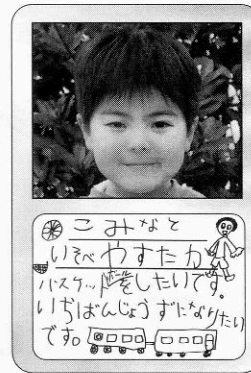 こみなと
いそべやすたか
バスケットボールをしたいです。
いちばんじょうずになりたい
です。